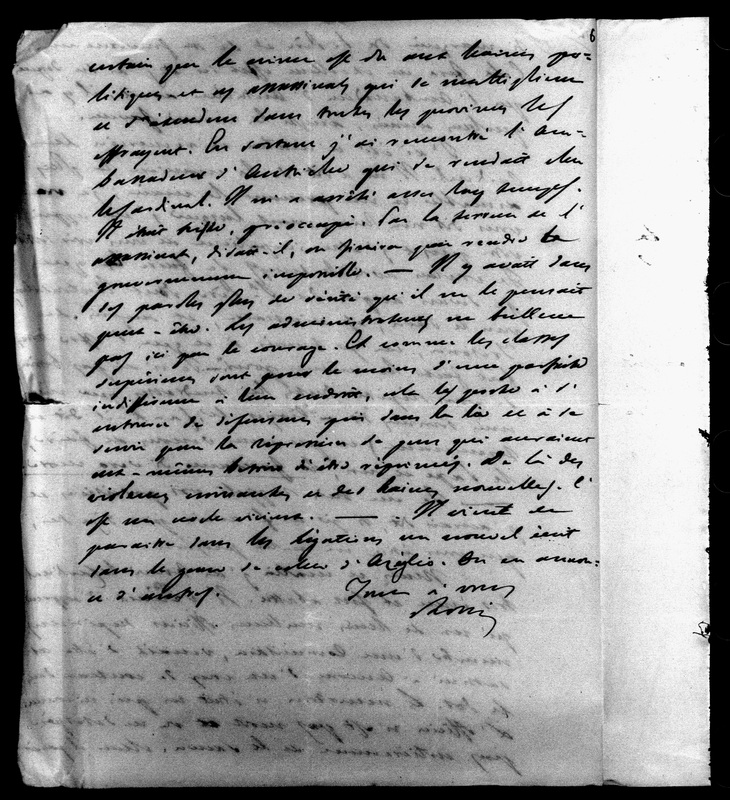 6
certain que le crime est dû aux haines po-
litiques et ces assassinats qui se multiplient
et s'étendent dans toutes les provinces les
effrayent. En sortant j'ai rencontré l'Am-
bassadeur d'Autriche qui se rendait chez
le Cardinal. Il m'a arrêté assez long temps.
Il était triste, préoccupé. Par la terreur de l'
assassinat, disait-il, on finira par rendre le
gouvernement impossible. — Il y avait dans
ses paroles plus de vérité qu'il ne le pensait
peut-être. Les administrateurs ne brillent
pas ici par le courage. Et comme les classes
supérieures sont pour le moins d'une parfaite
indifférence à leur endroit, cela les porte à s'
entourer de défenseurs pris dans la lie et à se
servir pour la répression de gens qui auraient
eux-mêmes besoin d'être réprimés. De là des
violences croissantes et des haines nouvelles. C'
est un cercle vicieux. — Il vient de
paraître dans les légations un nouvel écrit
dans le genre de celui d'Azeglio. On en annon-
ce d'autres.
Tout à vous
Rossi